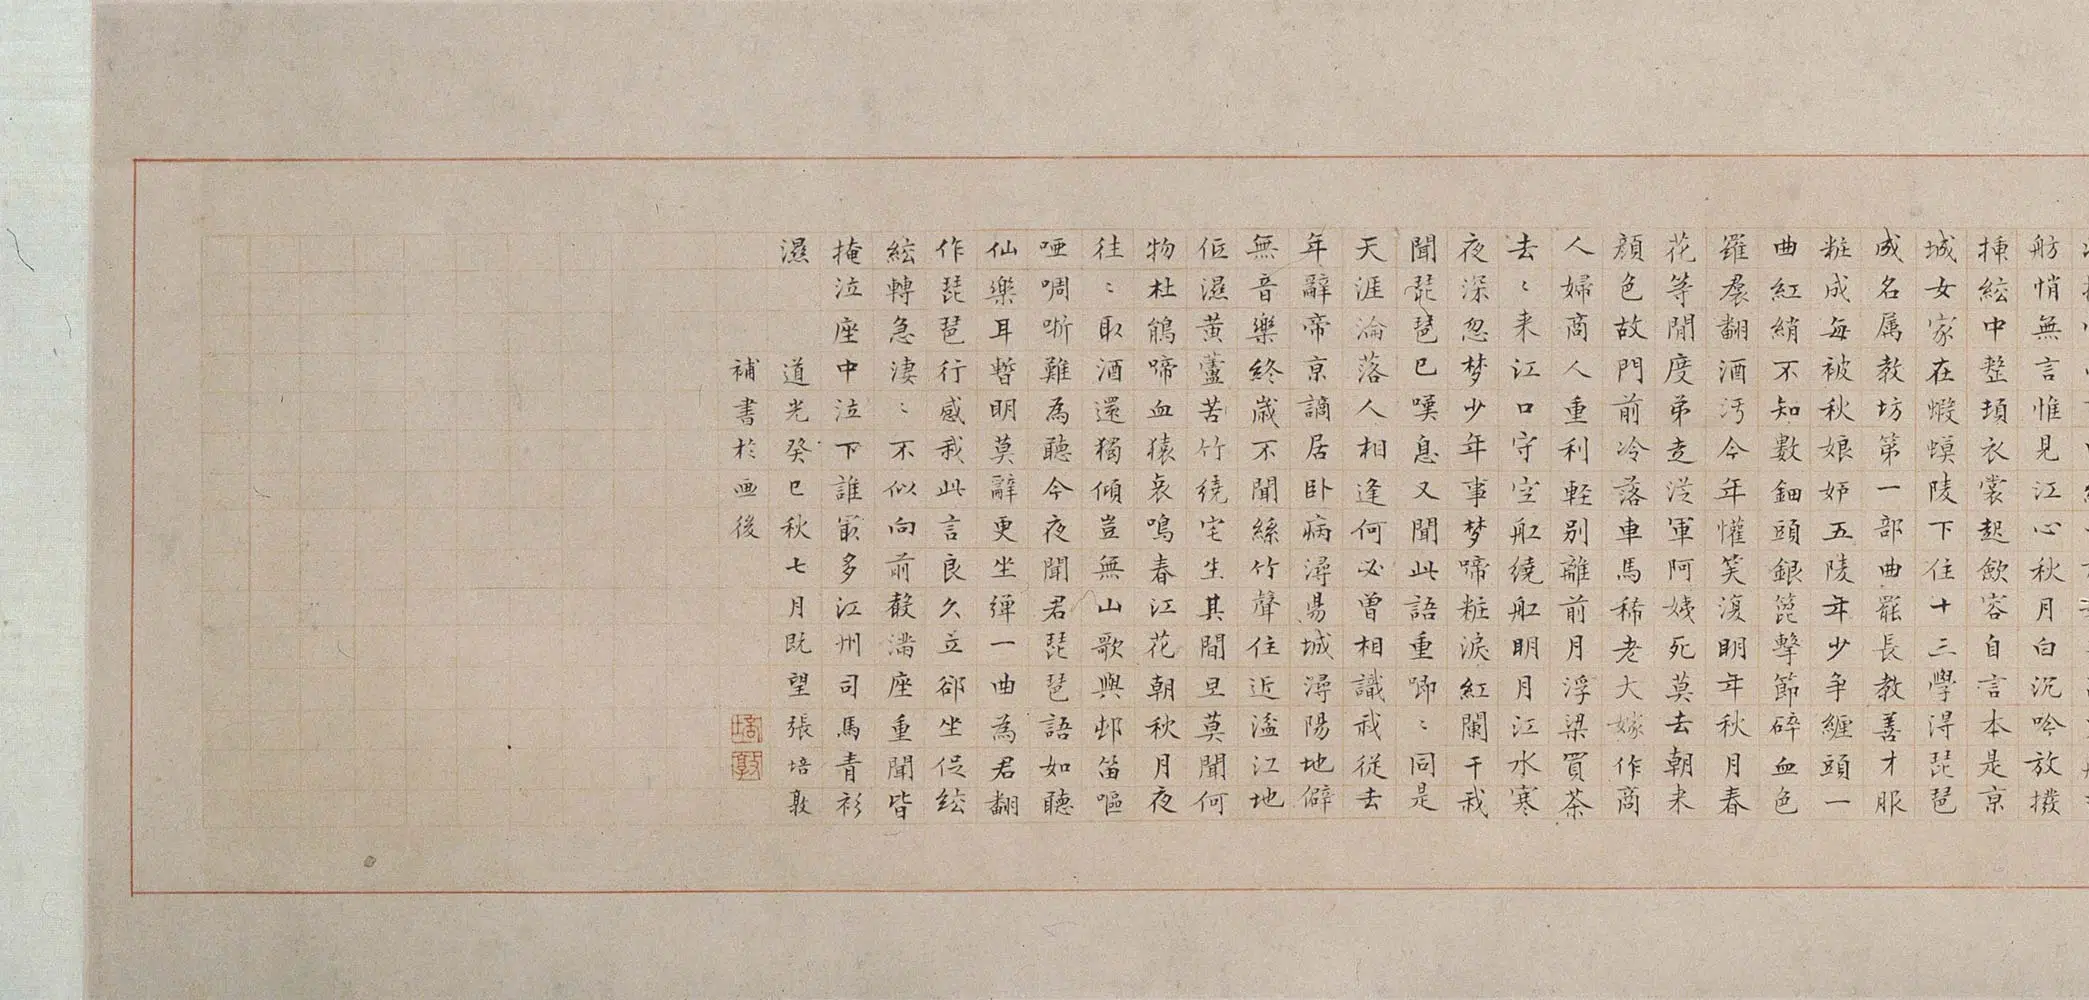 舫悄無言惟見江心秋月白沉吟放撥
揷絃中整頓衣裳起歛容自言本是京
城女家在蝦蟆陵下住十三學得琵琶
成名属教坊第一部曲罷長教善才服
粧成每被秋娘妒五陵年少争纏頭一
曲紅綃不知數鈿頭銀篦擊節碎血色
羅裠翻酒汚今年懽笑復明年秋月春
花等閒度弟走從軍阿姨死莫去朝来
顔色故門前冷落車馬稀老大嫁作商
人婦商人人重利輕别離前月浮梁買茶
去〻来江口守空舡繞舡明月江水寒
夜深忽梦少年事梦啼粧淚紅闌干我
聞琵琶已嘆息又聞此語重唧〻同是
天涯淪落人相逢何必曽相識我從去
年辭帝京謫居卧病潯昜城潯陽地僻
無音樂終歳不聞絲竹聲住近湓江地
伍濕黄蘆苦竹繞宅生其間旦莫聞何
物杜鵑啼血猿哀鳴春江花朝秋月夜
徃〻取酒還獨傾豈無山歌與邨笛嘔
唖啁哳難為聽今夜聞君琵琶語如聽
仙樂耳暫明莫辭更坐弹一曲為君翻
作琵琶行感我此言良久立郤坐促絃
絃轉急凄〻不似向前聲滿座重聞皆
掩泣座中泣下誰最多江州司馬青衫
濕
道光癸巳秋七月既望張培敦
補書於画後
培敦